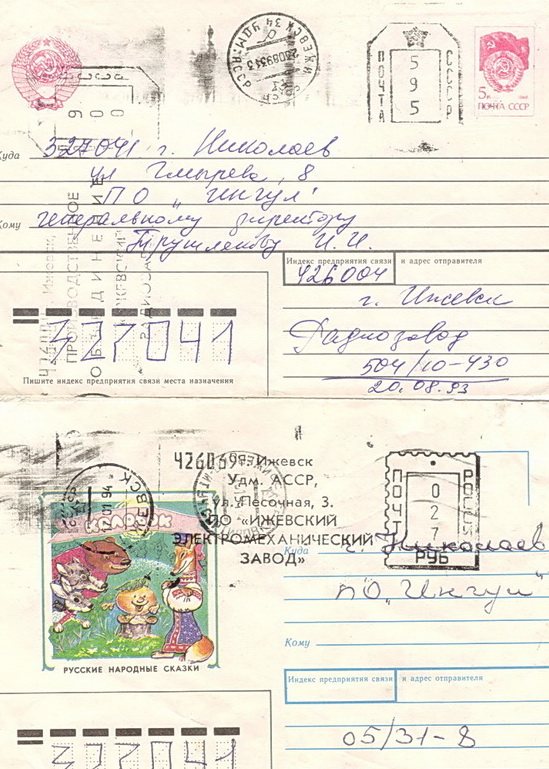 5к
ПОЧТА СССР
ПОЧТА
СССР
595
Куда 327041 г. Николаев
ул Гмырева, 8
ПО "Ингул"
Кому Генеральному директору
Трушлякову И.И.
Индекс предприятия связи и адрес отправителя
426004
г. Ижевск
Радиозавод
504/10-430
20.08.93
ПРОИЗВОДСТВЕННОЕ
ОБЪЕДИНЕНИЕ
327041
Пишите индекс предприятия связи места назначения
426069 г. Ижевск
Удм. АССР,
ул. Песочная, 3.
ПО «ИЖЕВСКИЙ
ЭЛЕКТРОМЕХАНИЧЕСКИЙ
ЗАВОД»
ПОЧТА
027
РУБ
КОЛОБОК
РУССКИЕ НАРОДНЫЕ СКАЗКИ
Куда г. Николаев
ПО "Ингул"
Кому
Индекс предприятия связи и адрес отправителя
05/31-8
327041